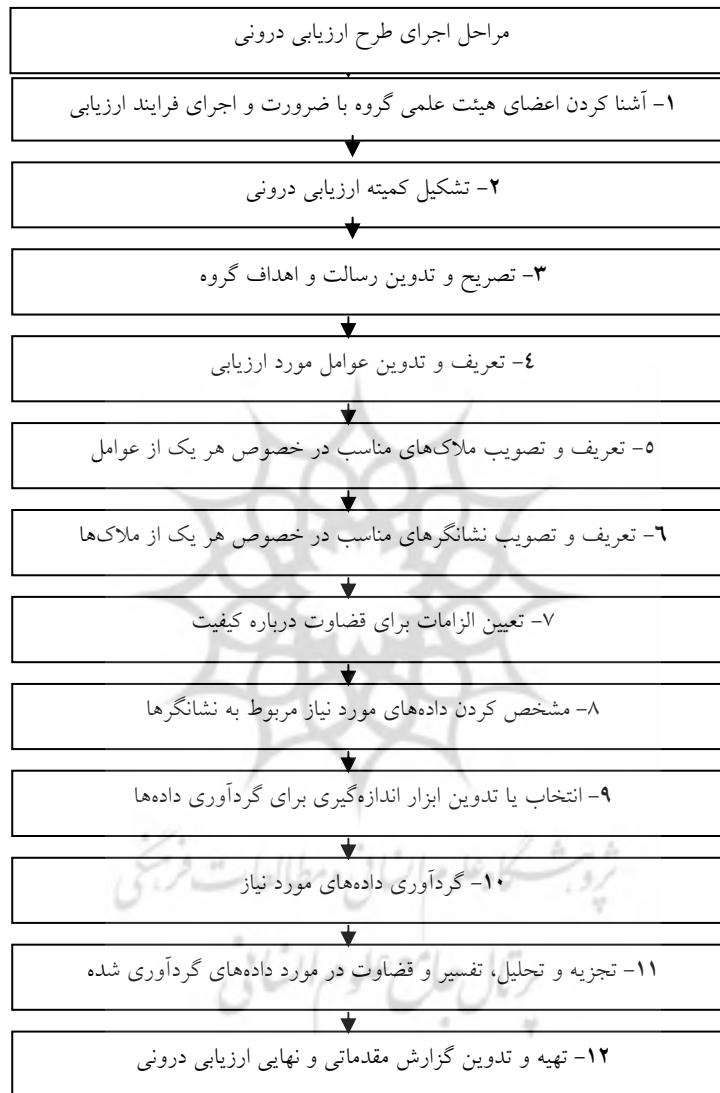 مراحل اجرای طرح ارزیابی درونی
۱- آشنا کردن اعضای هیئت علمی گروه با ضرورت و اجرای فرایند ارزیابی
۲- تشکیل کمیته ارزیابی درونی
۳- تصریح و تدوین رسالت و اهداف گروه
٤- تعریف و تدوین عوامل مورد ارزیابی
٥- تعریف و تصویب ملاک‌های مناسب در خصوص هر یک از عوامل
٦- تعریف و تصویب نشانگرهای مناسب در خصوص هر یک از ملاک‌ها
۷- تعیین الزامات برای قضاوت درباره کیفیت
۸- مشخص کردن داده‌های مورد نیاز مربوط به نشانگرها
۹- انتخاب یا تدوین ابزار اندازه‌گیری برای گردآوری داده‌ها
پژوهشگاه علوم انسانی و مطالعات فرهنگی
۱۰- گردآوری داده‌های مورد نیاز
۱۱- تجزیه و تحلیل، تفسیر و قضاوت در مورد داده‌های گردآوری شده
پرتال جامع علوم انسانی
۱۲- تهیه و تدوین گزارش مقدماتی و نهایی ارزیابی درونی